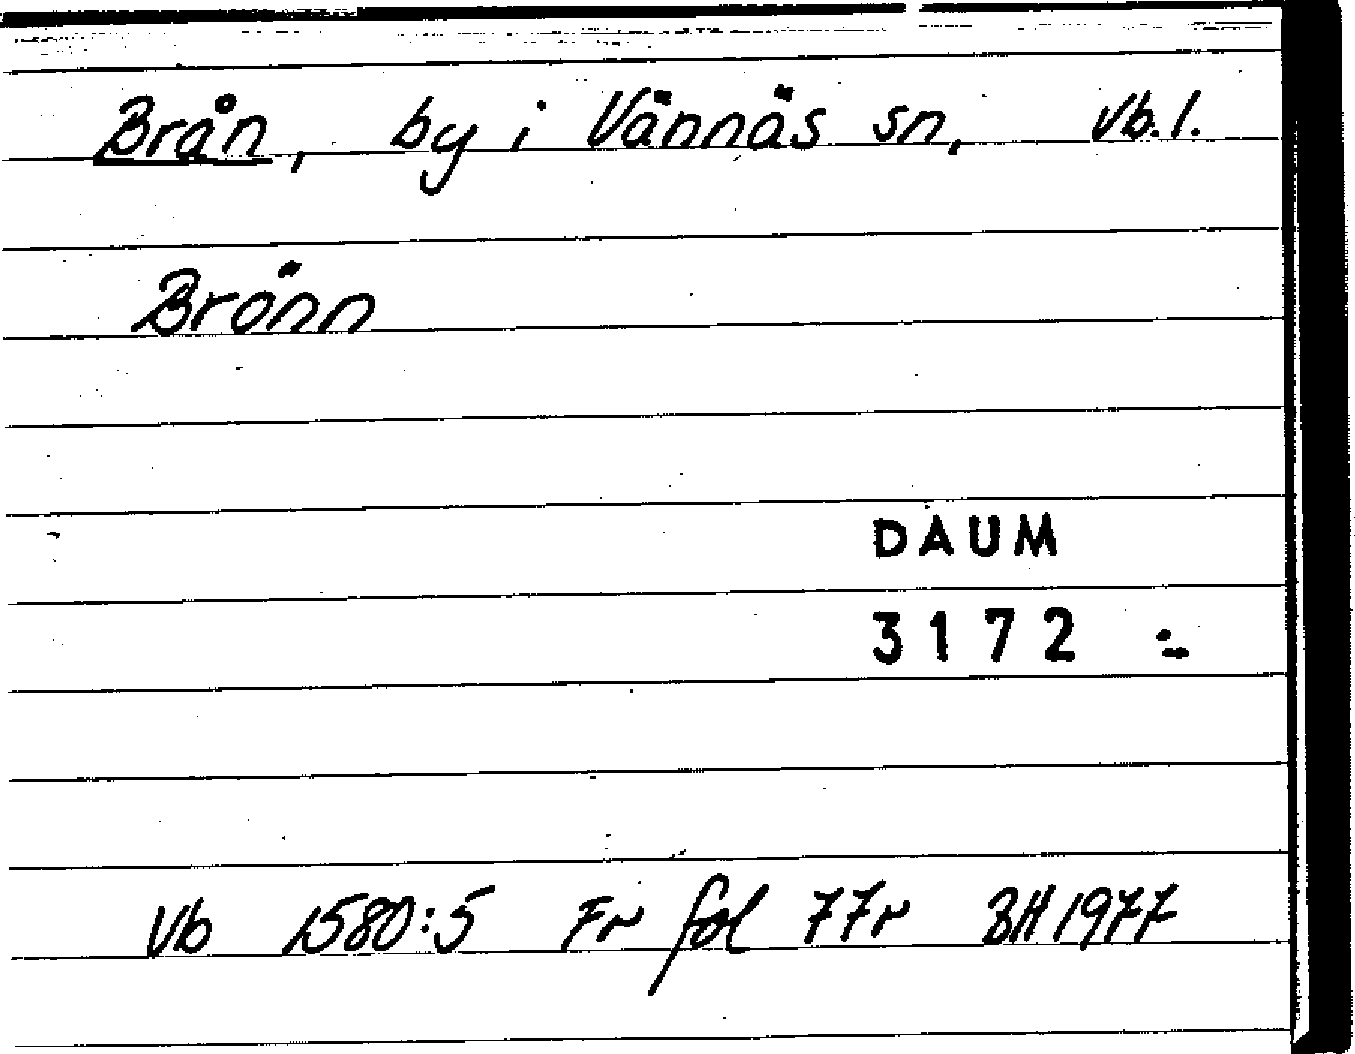 Brån, by i Vännäs sn, Vb.l.
Brönn
DAUM
3172 :-
Vb 1580:5 Fr fol 77r BH 1977